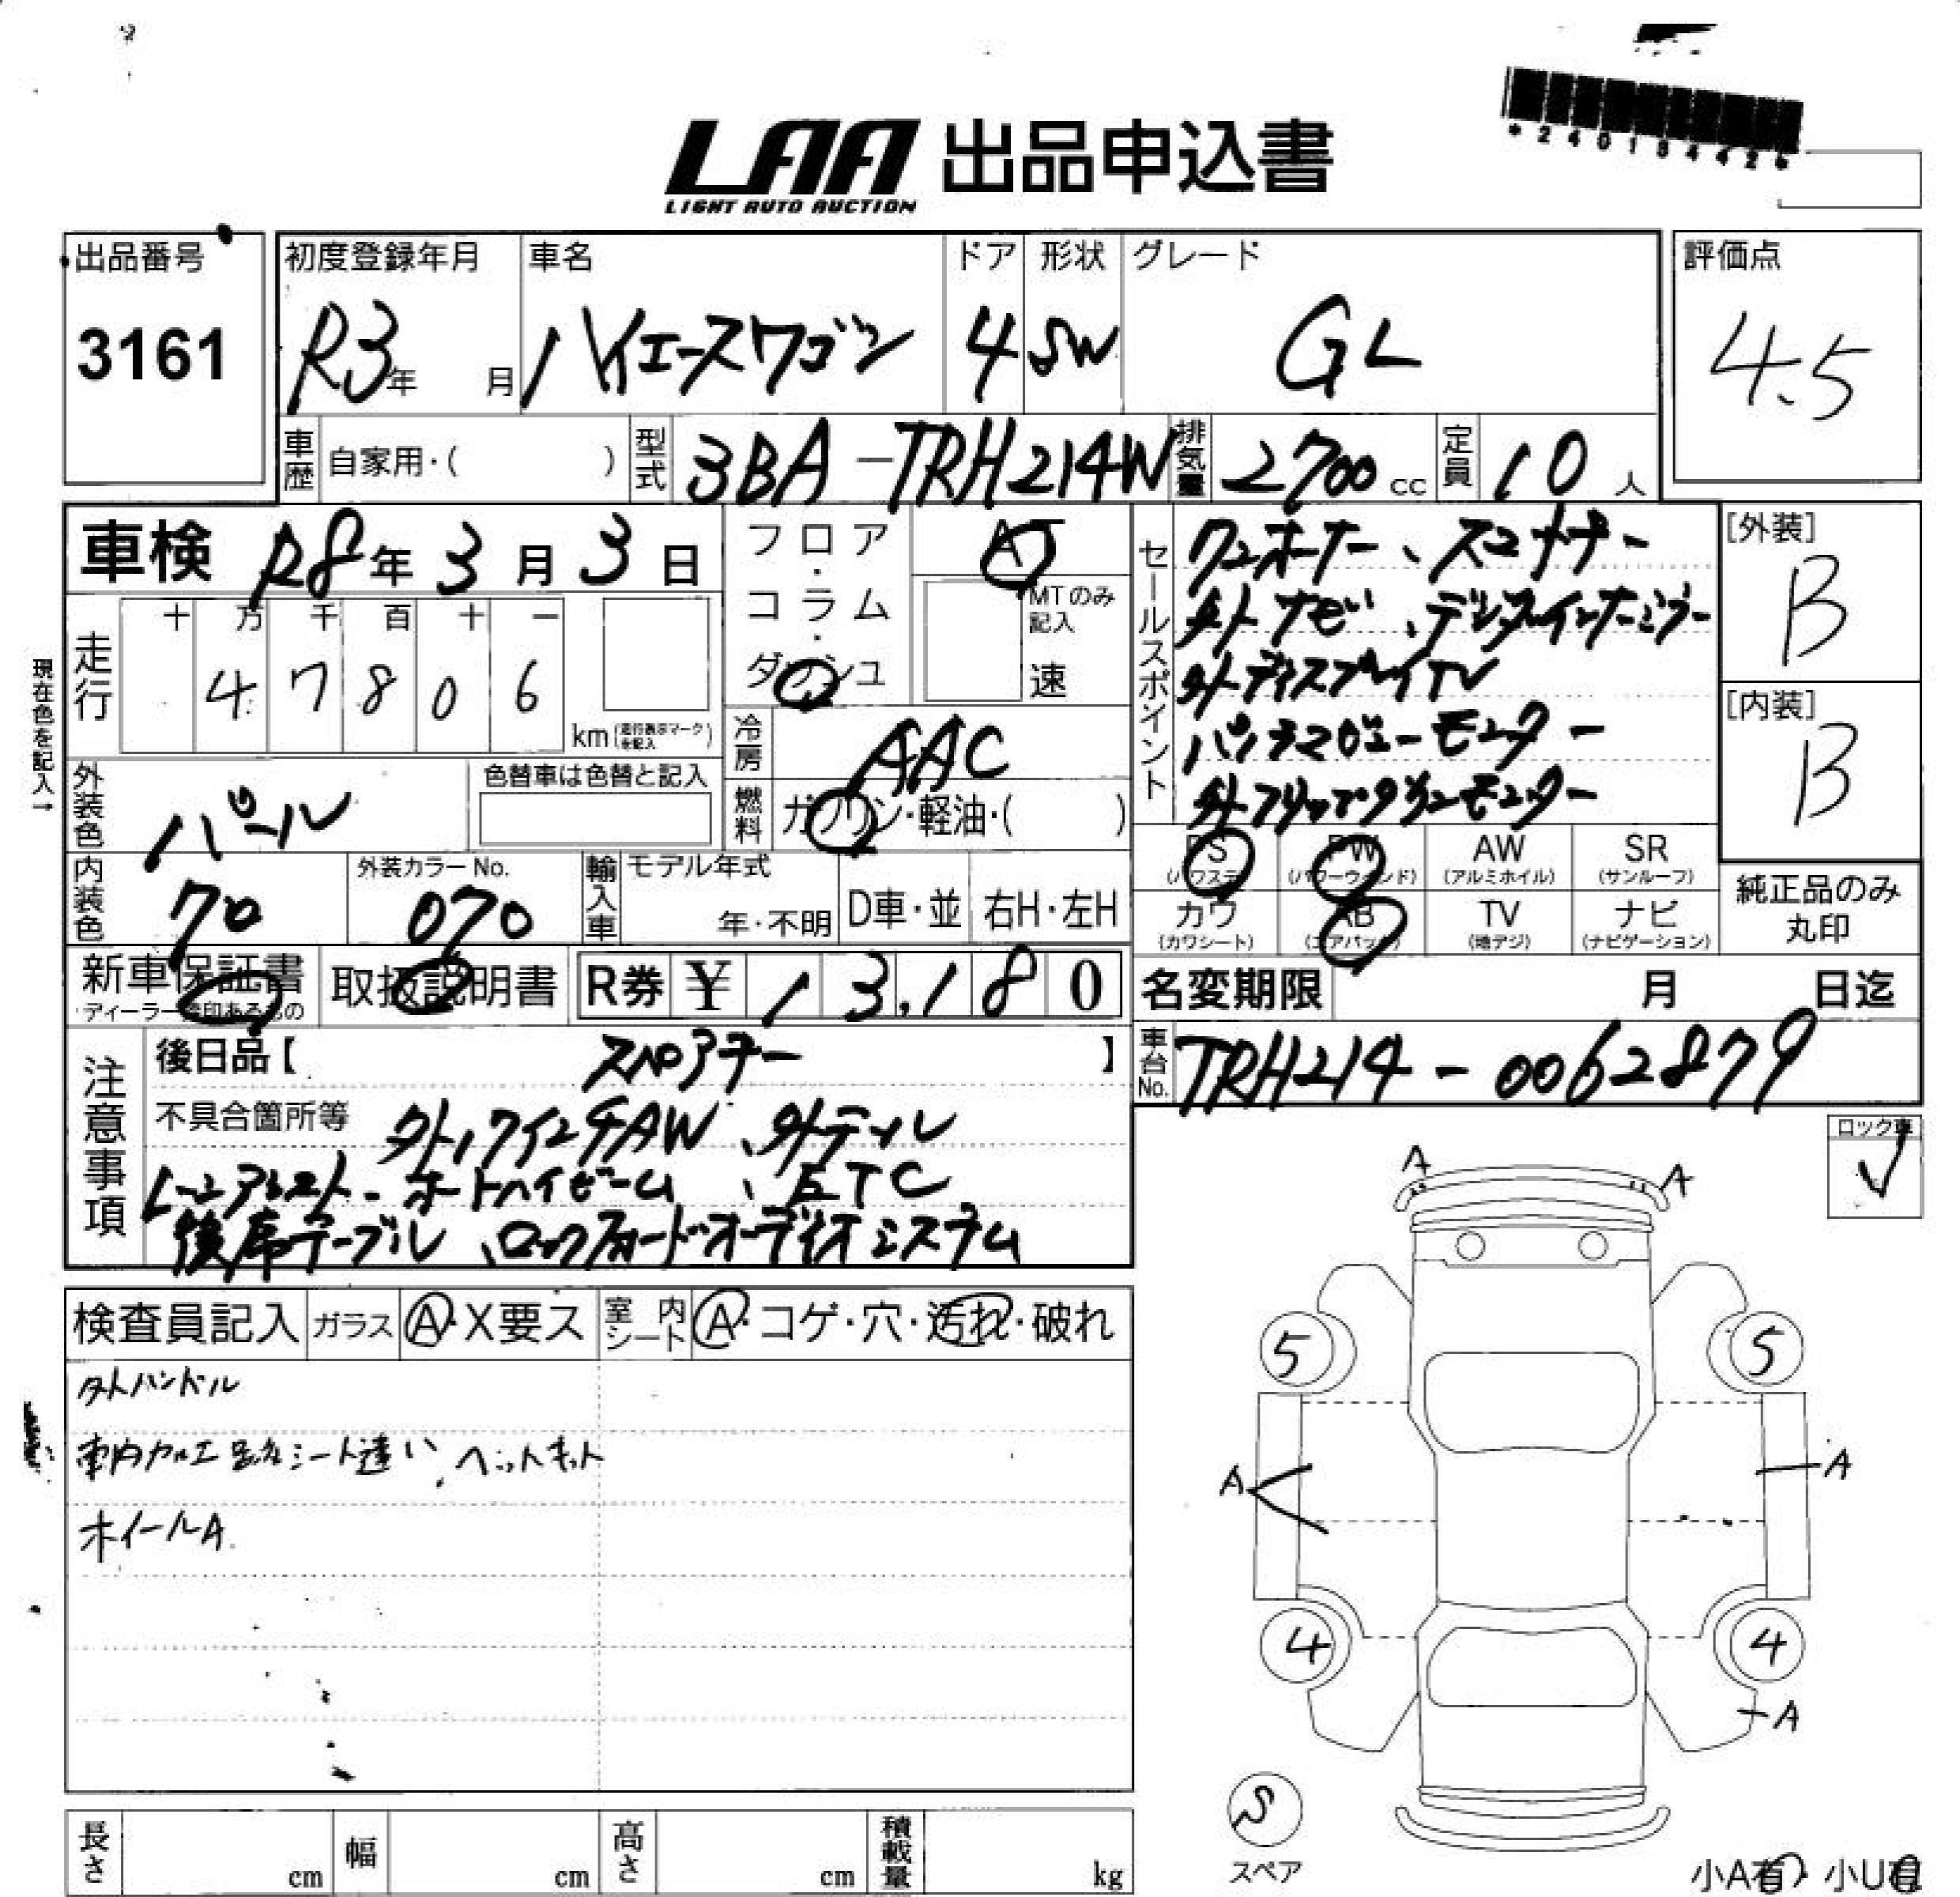 LAA 出品申込書
LIGHT AUTO AUCTION
*24013442*
出品番号
3161
初度登録年月
R3年 月
車名
ハイエースワゴン
ドア
4
形状
SW
グレード
GL
評価点
4.5
車歴 自家用・( )
型式 3BA-TRH214W
排気量 2700 cc
定員 10 人
車検 R8年 3月 3日
フロア・コラム・ダッシュ
AT
MTのみ記入
速
現在色を記入→
走行
十 万 千 百 十 一
4 7 8 0 6
km (走行表示マークを記入)
冷房 AAC
燃料 ガソリン・軽油・( )
外装色 パール
色替車は色替と記入
内装色 70
外装カラーNo. 070
輸入車 モデル年式
年・不明
D車・並
右H・左H
セールスポイント
ワンオーナー、スマートキー
外ナビ、デジタルインナーミラー
外ディスプレイTV
パノラマビューモニター
外フリップダウンモニター
[外装]
B
[内装]
B
PS (パワステ)
PW (パワーウィンド)
AW (アルミホイル)
SR (サンルーフ)
カワ (カワシート)
AB (エアバック)
TV (地デジ)
ナビ (ナビゲーション)
純正品のみ丸印
新車保証書
ディーラー印あるもの
取扱説明書
R券 ¥ 13,180
名変期限 月 日迄
車台No. TRH214-0062879
注意事項
後日品【 スペアキー 】
不具合箇所等 外17インチAW、外テール
レーンアシスト、オートハイビーム、ETC
後席テーブル、ロックフォードオーディオシステム
ロック車
✓
検査員記入
ガラス A・X要ス
室内シート A・コゲ・穴・汚れ・破れ
外ハンドル
車内加工跡 シート違い、ベットキット
ホイールA
A
A
5
5
A
A
4
4
A
S
スペア
長さ cm
幅 cm
高さ cm
積載量 kg
小A有・小U有